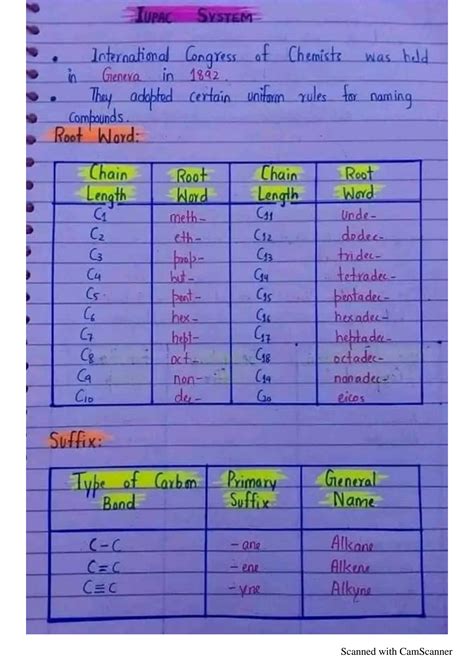 IUPAC SYSTEM
• International Congress of Chemists was held
in Geneva in 1892.
• They adopted certain uniform rules for naming
Compounds.
Root Word:
Chain Length Root Word Chain Length Root Word
C1 meth- C11 unde-
C2 eth- C12 dodec-
C3 prop- C13 tridec-
C4 but- C14 tetradec-
C5 pent- C15 pentadec-
C6 hex- C16 hexadec-
C7 hept- C17 heptadec-
C8 oct- C18 octadec-
C9 non- C19 nonadec-
C10 dec- C20 eicos
Suffix:
Type of Carbon Bond Primary Suffix General Name
C-C -ane Alkane
C=C -ene Alkene
C≡C -yne Alkyne
Scanned with CamScanner